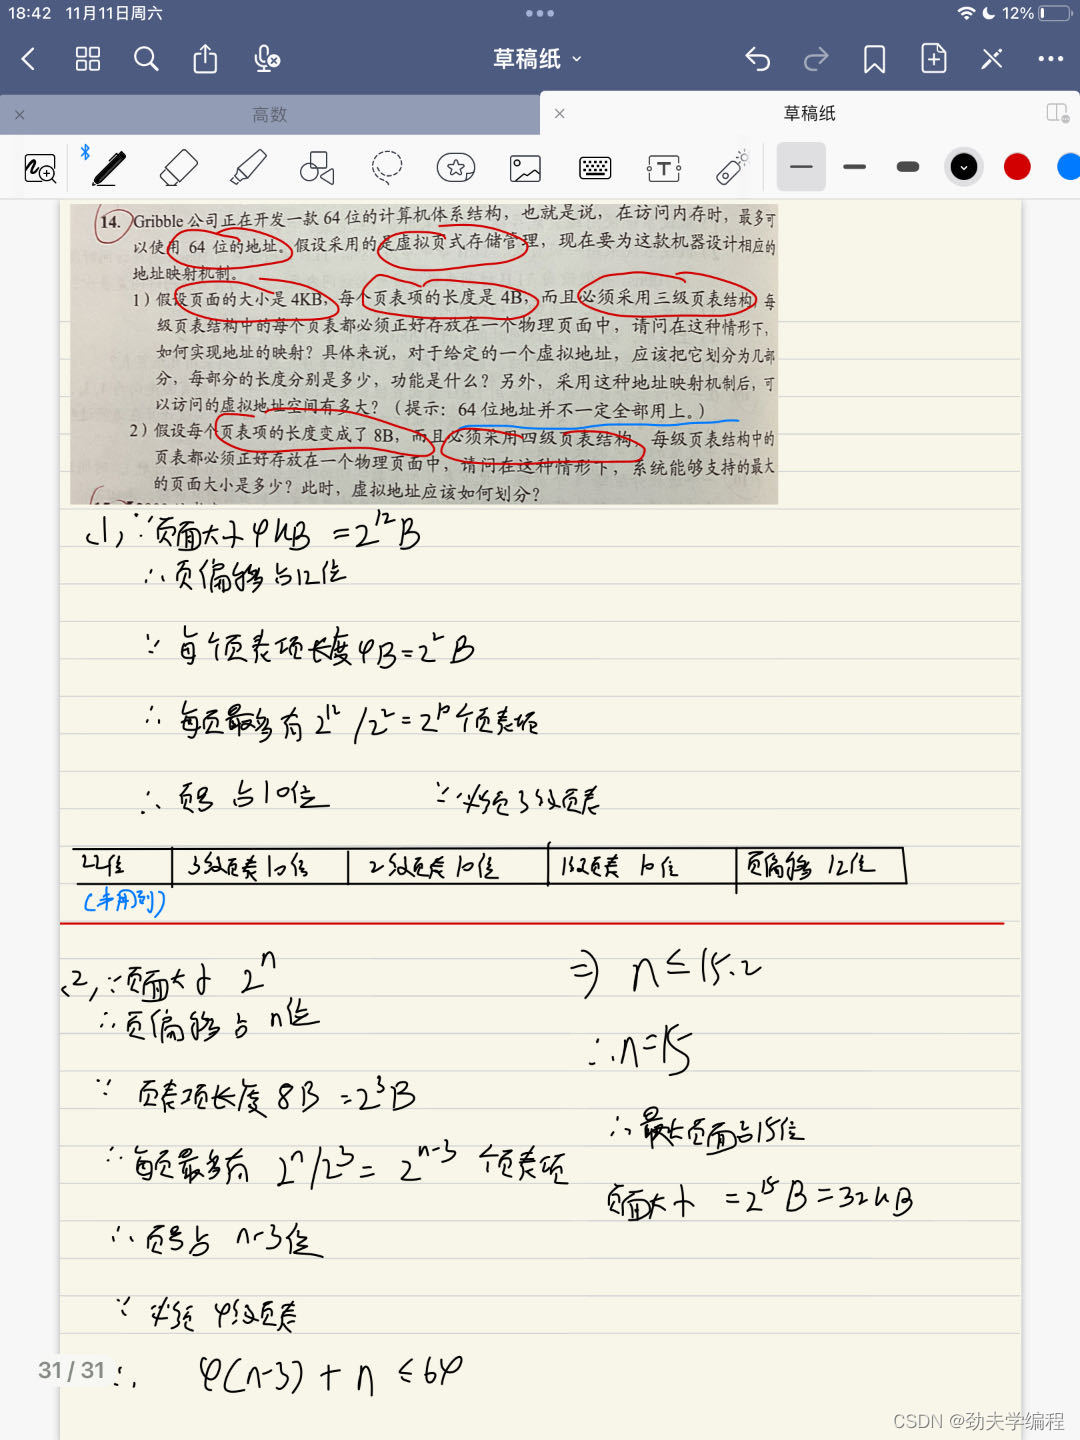 18:42 11月11日周六 12%
草稿纸
高数
草稿纸
14. Gribble 公司正在开发一款 64 位的计算机体系结构，也就是说，在访问内存时，最多可
以使用 64 位的地址。假设采用的是虚拟页式存储管理，现在要为这款机器设计相应的
地址映射机制。
1）假设页面的大小是 4KB，每个页表项的长度是 4B，而且必须采用三级页表结构，每
级页表结构中的每个页表都必须正好存放在一个物理页面中，请问在这种情形下，
如何实现地址的映射？具体来说，对于给定的一个虚拟地址，应该把它划分为几部
分，每部分的长度分别是多少，功能是什么？另外，采用这种地址映射机制后，可
以访问的虚拟地址空间有多大？（提示：64 位地址并不一定全部用上。）
2）假设每个页表项的长度变成了 8B，而且必须采用四级页表结构，每级页表结构中的
页表都必须正好存放在一个物理页面中，请问在这种情形下，系统能够支持的最大
的页面大小是多少？此时，虚拟地址应该如何划分？
(1) ∵页面大小 4KB = 2^12 B
∴页偏移占12位
∵ 每个页表项长度 4B = 2^2 B
∴ 每页最多有 2^12 / 2^2 = 2^10 个页表项
∴ 页号 占10位 ∵必须3级页表
22位 3级页表 10位 2级页表 10位 1级页表 10位 页偏移 12位
(未用到)
(2) ∵页面大小 2^n
∴页偏移占 n位
∵ 页表项长度 8B = 2^3 B
∴每页最多有 2^n / 2^3 = 2^n-3 个页表项
∴页号占 n-3位
∵ 必须 4级页表
∴ 4(n-3) + n ≤ 64
⇒ n ≤ 15.2
∴ n = 15
∴最大页面占15位
页面大小 = 2^15 B = 32KB
31 / 31
CSDN @劲夫学编程